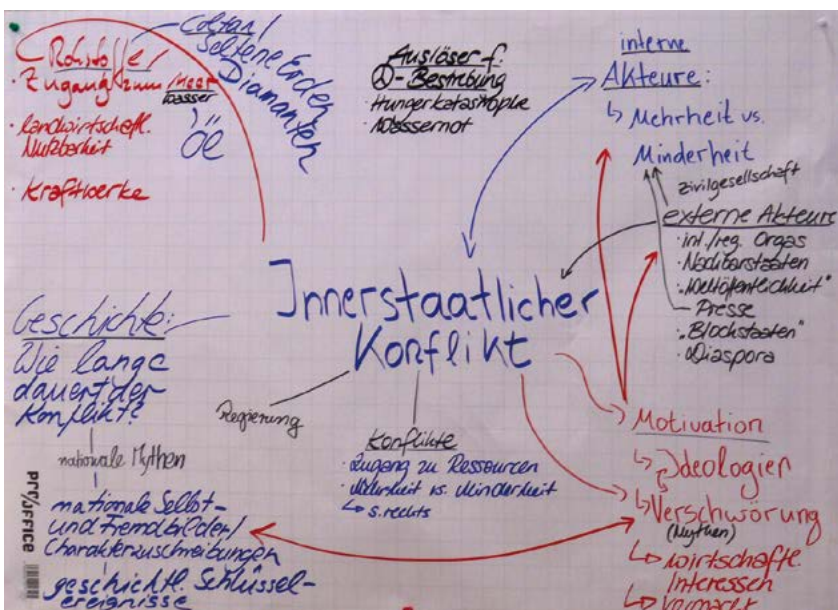 Rohstoffe/
Zugang zum Meer
wasser
Coltan/
Seltene Erden
Diamanten
Öl
· landwirtschaftl.
Nutzbarkeit
· Kraftwerke
Auslöser f.
-Bestrebung
· Hungerkatastrophe
· Wassernot
interne
Akteure:
↳ Mehrheit vs.
Minderheit
Zivilgesellschaft
externe Akteure
· int./reg. Orgas
· Nachbarstaaten
· "Weltöffentlichkeit"
Presse
· "Blockstaaten"
· Diaspora
Innerstaatlicher
Konflikt
Geschichte:
Wie lange
dauert der
Konflikt?
nationale Mythen
nationale Selbst-
und Fremdbilder/
Charakterzuschreibungen
geschichtl. Schlüssel-
ereignisse
Regierung
Konflikte
· Zugang zu Ressourcen
· Mehrheit vs. Minderheit
↳ s. rechts
Motivation
↳ Ideologien
↳ Verschwörung
(Mythen)
↳ wirtschaftl.
Interessen
PRO/OFFICE